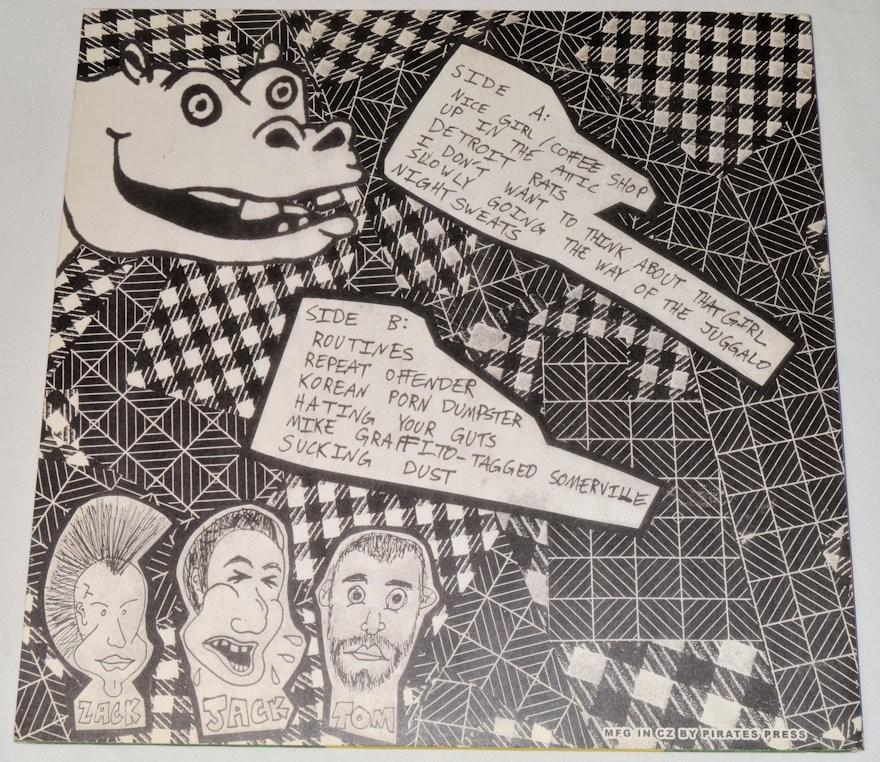 SIDE A:
NICE GIRL / COFFEE SHOP
UP IN THE ATTIC
DETROIT RATS
I DON'T WANT TO THINK ABOUT THAT GIRL
SLOWLY GOING THE WAY OF THE JUGGALO
NIGHT SWEATS
SIDE B:
ROUTINES
REPEAT OFFENDER
KOREAN PORN DUMPSTER
HATING YOUR GUTS
MIKE GRAFFITO-TAGGED SOMERVILLE
SUCKING DUST
ZACK
JACK
TOM
MFG IN CZ BY PIRATES PRESS